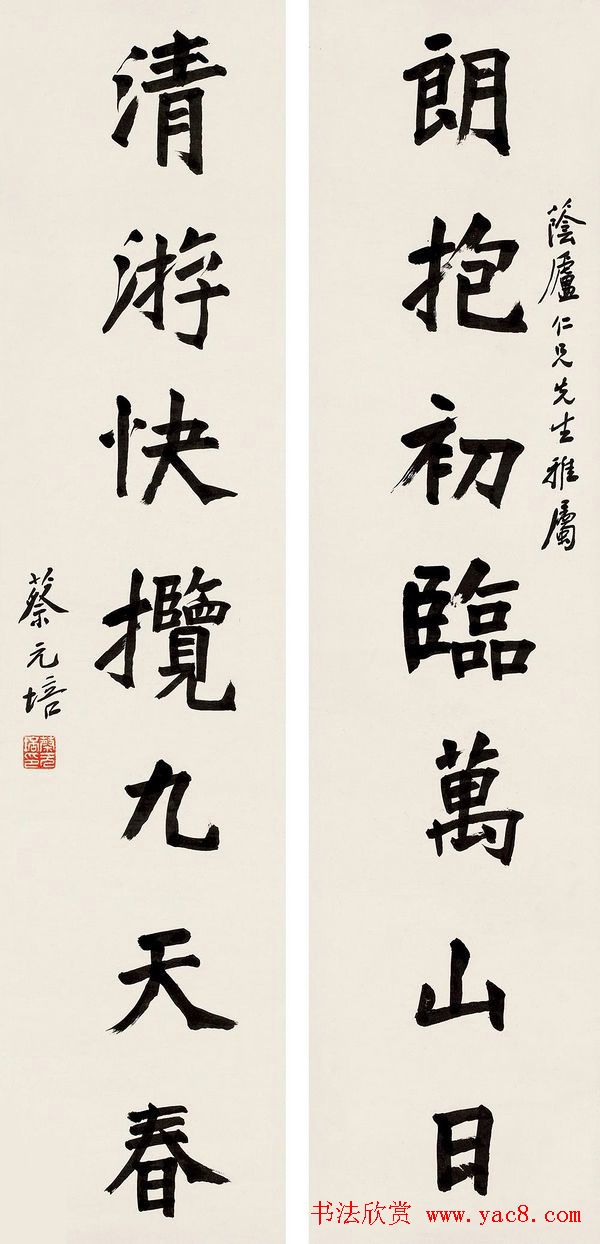 蔭廬仁兄先生雅屬
朗抱初臨萬山日
清游快攬九天春
蔡元培
蔡元培印
书法欣赏 www.yac8.com